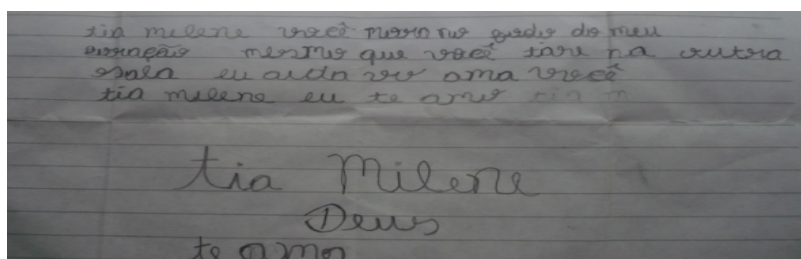 tia milene você mora no fundo do meu
corração mesmo que você tare na outra
sala eu ainda vo ama você
tia milene eu te amo tia m
tia Milene
Deus
te amo